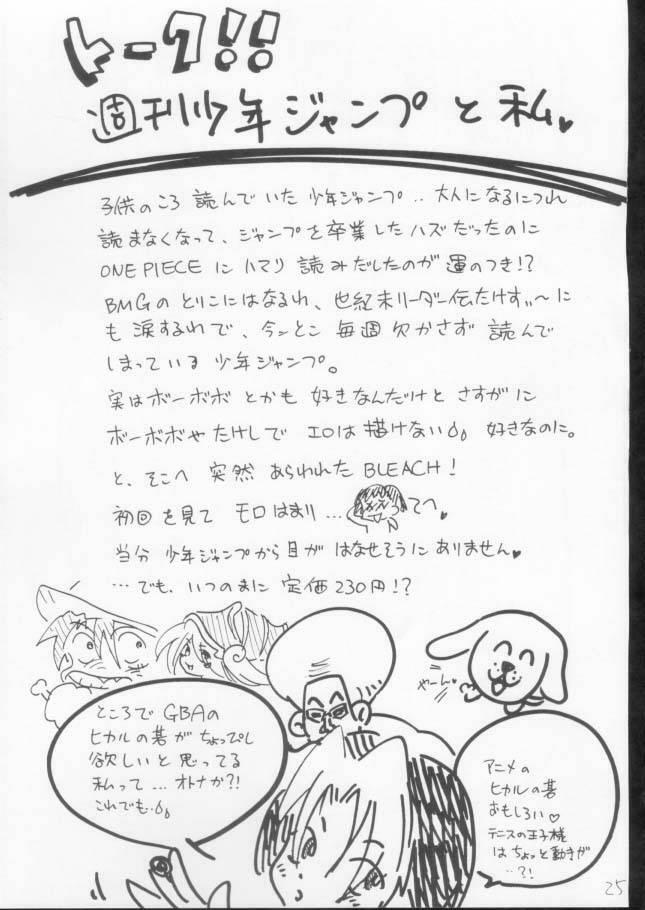 トーク!!
週刊少年ジャンプと私♥
子供のころ 読んでいた 少年ジャンプ‥大人になるにつれ
読まなくなって、ジャンプを卒業したハズだったのに
ONE PIECE に ハマり 読みだしたのが 運のつき!?
BMGの とりこにはなるわ、世紀末リーダー伝たけすぃ〜に
も 涙するわで、今んとこ 毎週 欠かさず 読んで
しまっている 少年ジャンプ。
実はボーボボ とかも 好きなんだけど さすがに
ボーボボや たけしで エロは描けない 好きなのに。
と、そこへ 突然 あらわれた BLEACH!
初回を見て モロはまり… てへ♥
当分 少年ジャンプから目が はなせそうに ありません♥
…でも、いつのまに 定価230円!?
やーん
ところで GBAの
ヒカルの碁が ちょっぴし
欲しいと 思ってる
私って… オトナか?!
これでも‥
アニメの
ヒカルの碁
おもしろい♡
テニスの王子様
はちょっと動きが
‥?!
25